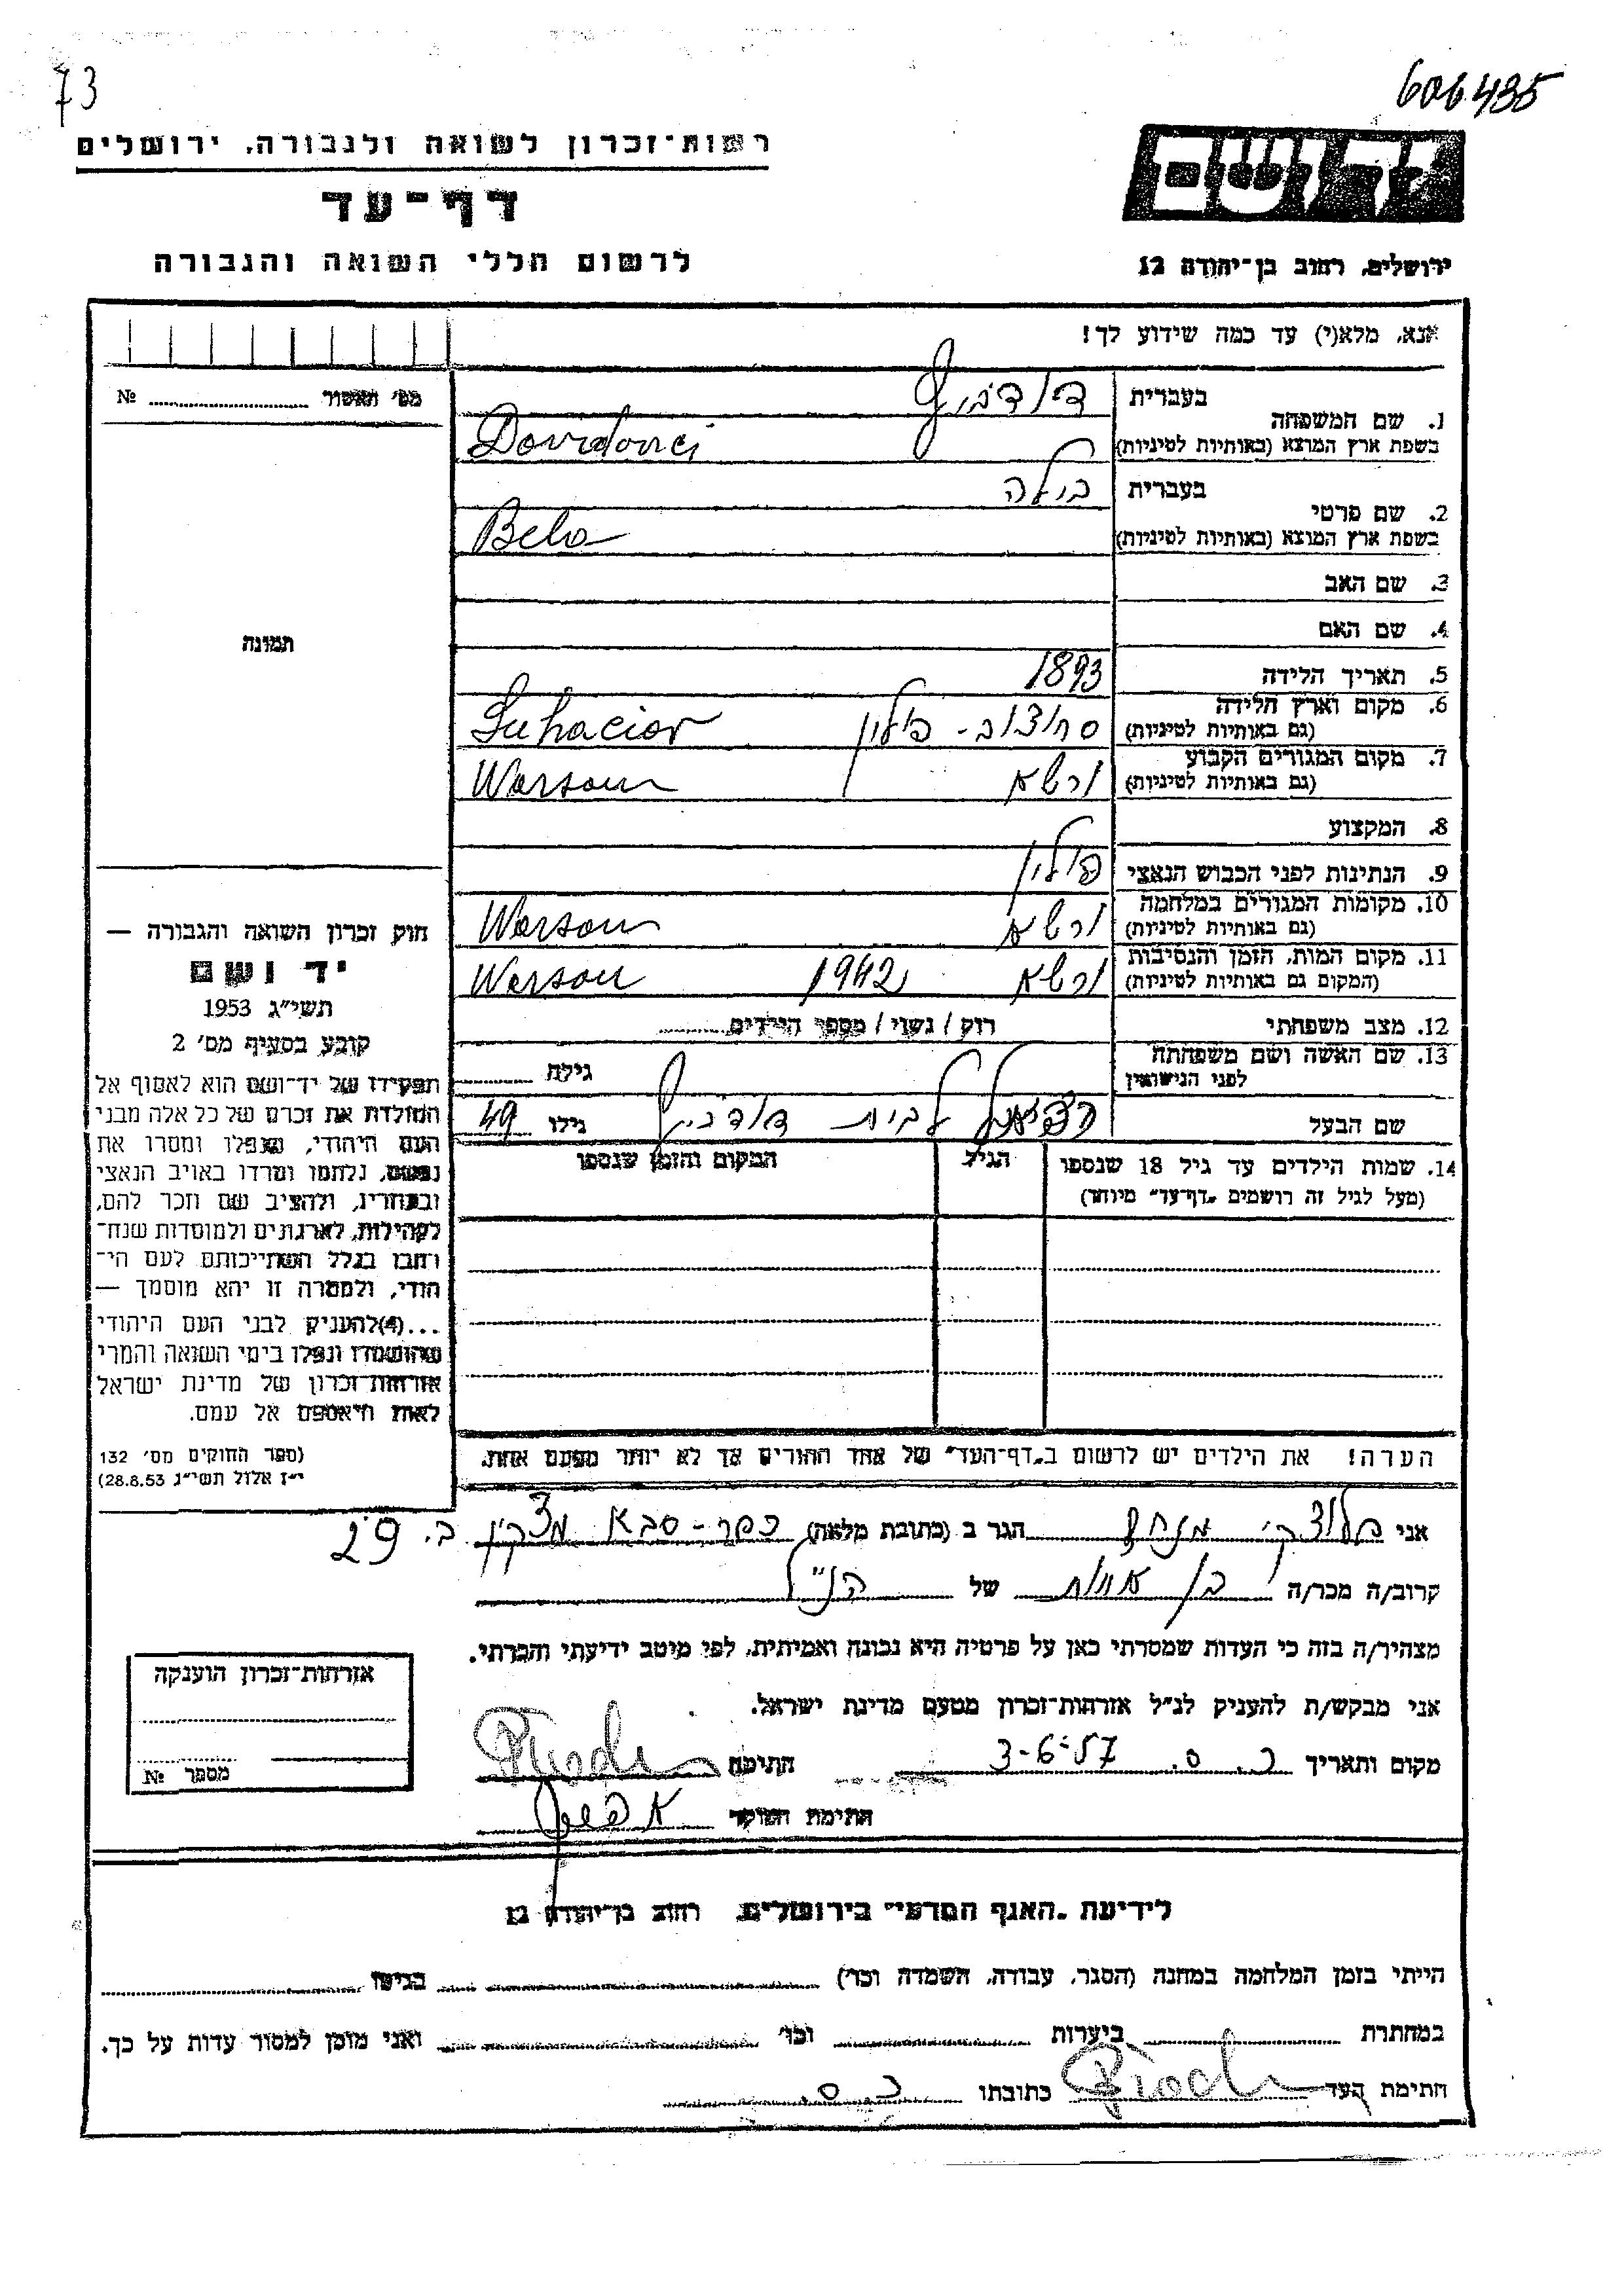 73
606435
רשות-זכרון לשואה ולגבורה, ירושלים
דף-עד
לרשום חללי השואה והגבורה
ירושלים, רחוב בן-יהודה 12
אנא, מלא(י) עד כמה שידוע לך!
מס' תאשור № ........
1. שם המשפחה
בעברית דודבוץ
בשפת ארץ המוצא (באותיות לטיניות)
2. שם פרטי
בעברית בילה
בשפת ארץ המוצא (באותיות לטיניות) Bela
3. שם האב
4. שם האם
5. תאריך הלידה 1893
6. מקום וארץ הלידה סחצוב - פולין
(גם באותיות לטיניות)
7. מקום המגורים הקבוע ורשא
(גם באותיות לטיניות) Warsau
8. המקצוע
9. הנתינות לפני הכבוש הנאצי פולין
10. מקומות המגורים במלחמה ורשא
(גם באותיות לטיניות) Warsau
11. מקום המות, הזמן והנסיבות ורשא 1942
(המקום גם באותיות לטיניות) Warsau
12. מצב משפחתי רוק / נשוי / מספר הילדים ........
13. שם האשה ושם משפחתה
לפני הנישואין
גילה ........
שם הבעל לבית גילו 49
14. שמות הילדים עד גיל 18 שנספו
(מעל לגיל זה רושמים "דף-עד" מיוחד)
הגיל
המקום והזמן שנספו
תמונה
חוק זכרון השואה והגבורה —
יד ושם
תשי"ג 1953
קובע בסעיף מס' 2
תפקידו של יד-ושם הוא לאסוף אל
המולדת את זכרם של כל אלה מבני
העם היהודי, שנפלו ומסרו את
נפשם, נלחמו ומרדו באויב הנאצי
ובעוזריו, ולהציב שם וזכר להם,
לקהילות, לארגונים ולמוסדות שנח-
רחבו בגלל השתייכותם לעם הי-
הודי, ולמטרה זו יהא מוסמך —
...(4)להעניק לבני העם היהודי
שהושמדו ונפלו בימי השואה והמרי
אזרחות-זכרון של מדינת ישראל
לאות היאספם אל עמם.
(ספר החוקים מס' 132
י"ז אלול תשי"ג 28.8.53)
הערה! את הילדים יש לרשום ב"דף-העד" של אחד ההורים אך לא יותר מפעם אחת.
אני הגר ב (כתובת מלאה) כפר-סבא ב. 29
קרוב/ה מכר/ה בן אחות של הנ"ל
מצהיר/ה בזה כי העדות שמסרתי כאן על פרטיה היא נכונה ואמיתית, לפי מיטב ידיעתי והכרתי.
אני מבקש/ת להעניק לנ"ל אזרחות-זכרון מטעם מדינת ישראל.
מקום ותאריך כ. ס. 3-6-57 חתימה
חתימת הפוקד
אזרחות-זכרון הוענקה
מספר №
לידיעת "האגף המדעי" בירושלים, רחוב בן-יהודה 12
הייתי בזמן המלחמה במחנה (הסגר, עבודה, השמדה וכו') ........ בגיטו ........
במחתרת ........ ביערות ........ וכו' ........ ואני מוכן למסור עדות על כך.
חתימת העד כתובתו כ. ס.